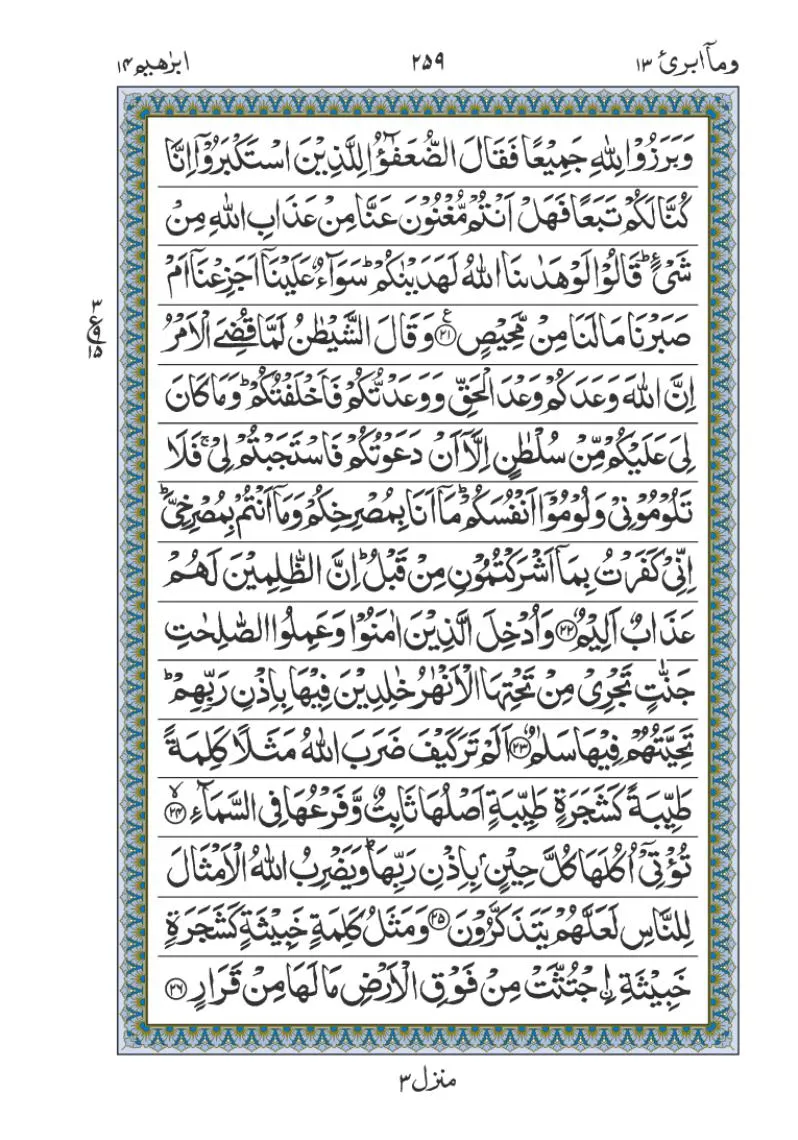 وماۤ ابرئ ١٣
٢٥٩
ابرٰهیم ١٤
وَبَرَزُوۡا لِلّٰهِ جَمِيۡعًا فَقَالَ الضُّعَفٰٓؤُا لِلَّذِيۡنَ اسۡتَكۡبَرُوۡۤا اِنَّا
كُنَّا لَكُمۡ تَبَعًا فَهَلۡ اَنۡتُمۡ مُّغۡنُوۡنَ عَنَّا مِنۡ عَذَابِ اللّٰهِ مِنۡ
شَىۡءٍ‌ؕ قَالُوۡا لَوۡ هَدٰٮنَا اللّٰهُ لَهَدَيۡنٰكُمۡ‌ؕ سَوَآءٌ عَلَيۡنَاۤ اَجَزِعۡنَاۤ اَمۡ
صَبَرۡنَا مَا لَنَا مِنۡ مَّحِيۡصٍ ﴿۲۱﴾ ع وَقَالَ الشَّيۡطٰنُ لَمَّا قُضِىَ الۡاَمۡرُ
٣
ع
٩
١٥
اِنَّ اللّٰهَ وَعَدَكُمۡ وَعۡدَ الۡحَـقِّ وَوَعَدْتُّكُمۡ فَاَخۡلَفۡتُكُمۡ‌ؕ وَمَا كَانَ
لِىَ عَلَيۡكُمۡ مِّنۡ سُلۡطٰنٍ اِلَّاۤ اَنۡ دَعَوۡتُكُمۡ فَاسۡتَجَبۡتُمۡ لِىۡ‌ۚ فَلَا
تَلُوۡمُوۡنِىۡ وَلُوۡمُوۡۤا اَنۡفُسَكُمۡ‌ؕ مَاۤ اَنَا بِمُصۡرِخِكُمۡ وَمَاۤ اَنۡتُمۡ بِمُصۡرِخِىَّ‌ؕ
اِنِّىۡ كَفَرۡتُ بِمَاۤ اَشۡرَكۡتُمُوۡنِ مِنۡ قَبۡلُ‌ؕ اِنَّ الظّٰلِمِيۡنَ لَهُمۡ
عَذَابٌ اَلِيۡمٌ ﴿۲۲﴾ وَاُدۡخِلَ الَّذِيۡنَ اٰمَنُوۡا وَعَمِلُوا الصّٰلِحٰتِ
جَنّٰتٍ تَجۡرِىۡ مِنۡ تَحۡتِهَا الۡاَنۡهٰرُ خٰلِدِيۡنَ فِيۡهَا بِاِذۡنِ رَبِّهِمۡ‌ؕ
تَحِيَّتُهُمۡ فِيۡهَا سَلٰمٌ ﴿۲۳﴾ اَلَمۡ تَرَ كَيۡفَ ضَرَبَ اللّٰهُ مَثَلًا كَلِمَةً
طَيِّبَةً كَشَجَرَةٍ طَيِّبَةٍ اَصۡلُهَا ثَابِتٌ وَّفَرۡعُهَا فِى السَّمَآءِ ۙ ﴿۲۴﴾
تُؤۡتِىۡۤ اُكُلَهَا كُلَّ حِيۡنٍۢ بِاِذۡنِ رَبِّهَا‌ؕ وَيَضۡرِبُ اللّٰهُ الۡاَمۡثَالَ
لِلنَّاسِ لَعَلَّهُمۡ يَتَذَكَّرُوۡنَ ﴿۲۵﴾ وَمَثَلُ كَلِمَةٍ خَبِيۡثَةٍ كَشَجَرَةٍ
خَبِيۡثَةِ ۨاجۡتُثَّتۡ مِنۡ فَوۡقِ الۡاَرۡضِ مَا لَهَا مِنۡ قَرَارٍ ﴿۲۶﴾
منزل ٣